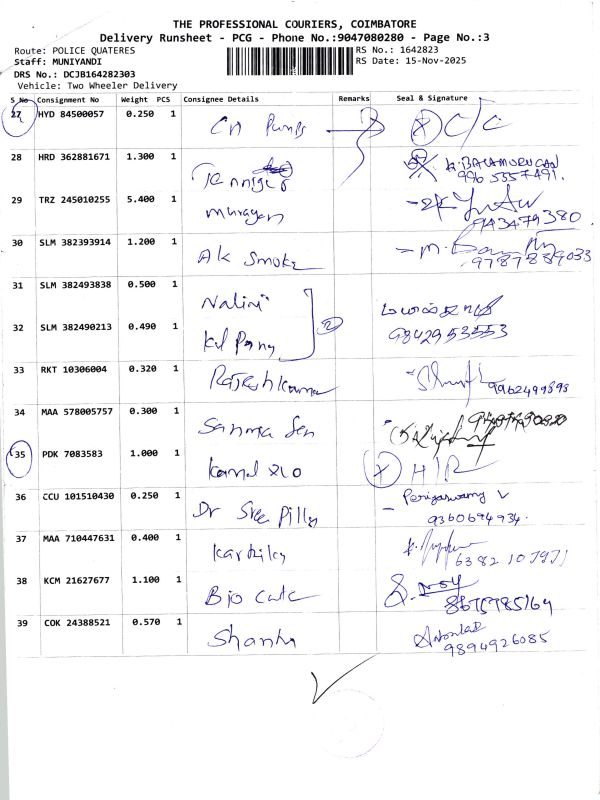 THE PROFESSIONAL COURIERS, COIMBATORE
Delivery Runsheet - PCG - Phone No.:9047080280 - Page No.:3
Route: POLICE QUATERES RS No.: 1642823
Staff: MUNIYANDI RS Date: 15-Nov-2025
DRS No.: DCJB164282303
Vehicle: Two Wheeler Delivery
S No Consignment No Weight PCS Consignee Details Remarks Seal & Signature
27 HYD 84500057 0.250 1 X C/C
28 HRD 362881671 1.300 1 BALAMURUGAN
9965357491.
29 TRZ 245010255 5.400 1 Murugan
943479380
30 SLM 382393914 1.200 1 Ak Smoke
9787889033
31 SLM 382493838 0.500 1 Nalini
32 SLM 382490213 0.490 1 2 9842953553
33 RKT 10306004 0.320 1 Rajeshkumar
34 MAA 578005757 0.300 1
35 PDK 7083583 1.000 1 X H/R
36 CCU 101510430 0.250 1 Dr Sree Pilly Periyaswamy V
9360694934.
37 MAA 710447631 0.400 1
38 KCM 21627677 1.100 1 Bio
8675785164
39 COK 24388521 0.570 1 Shanth
9894926085